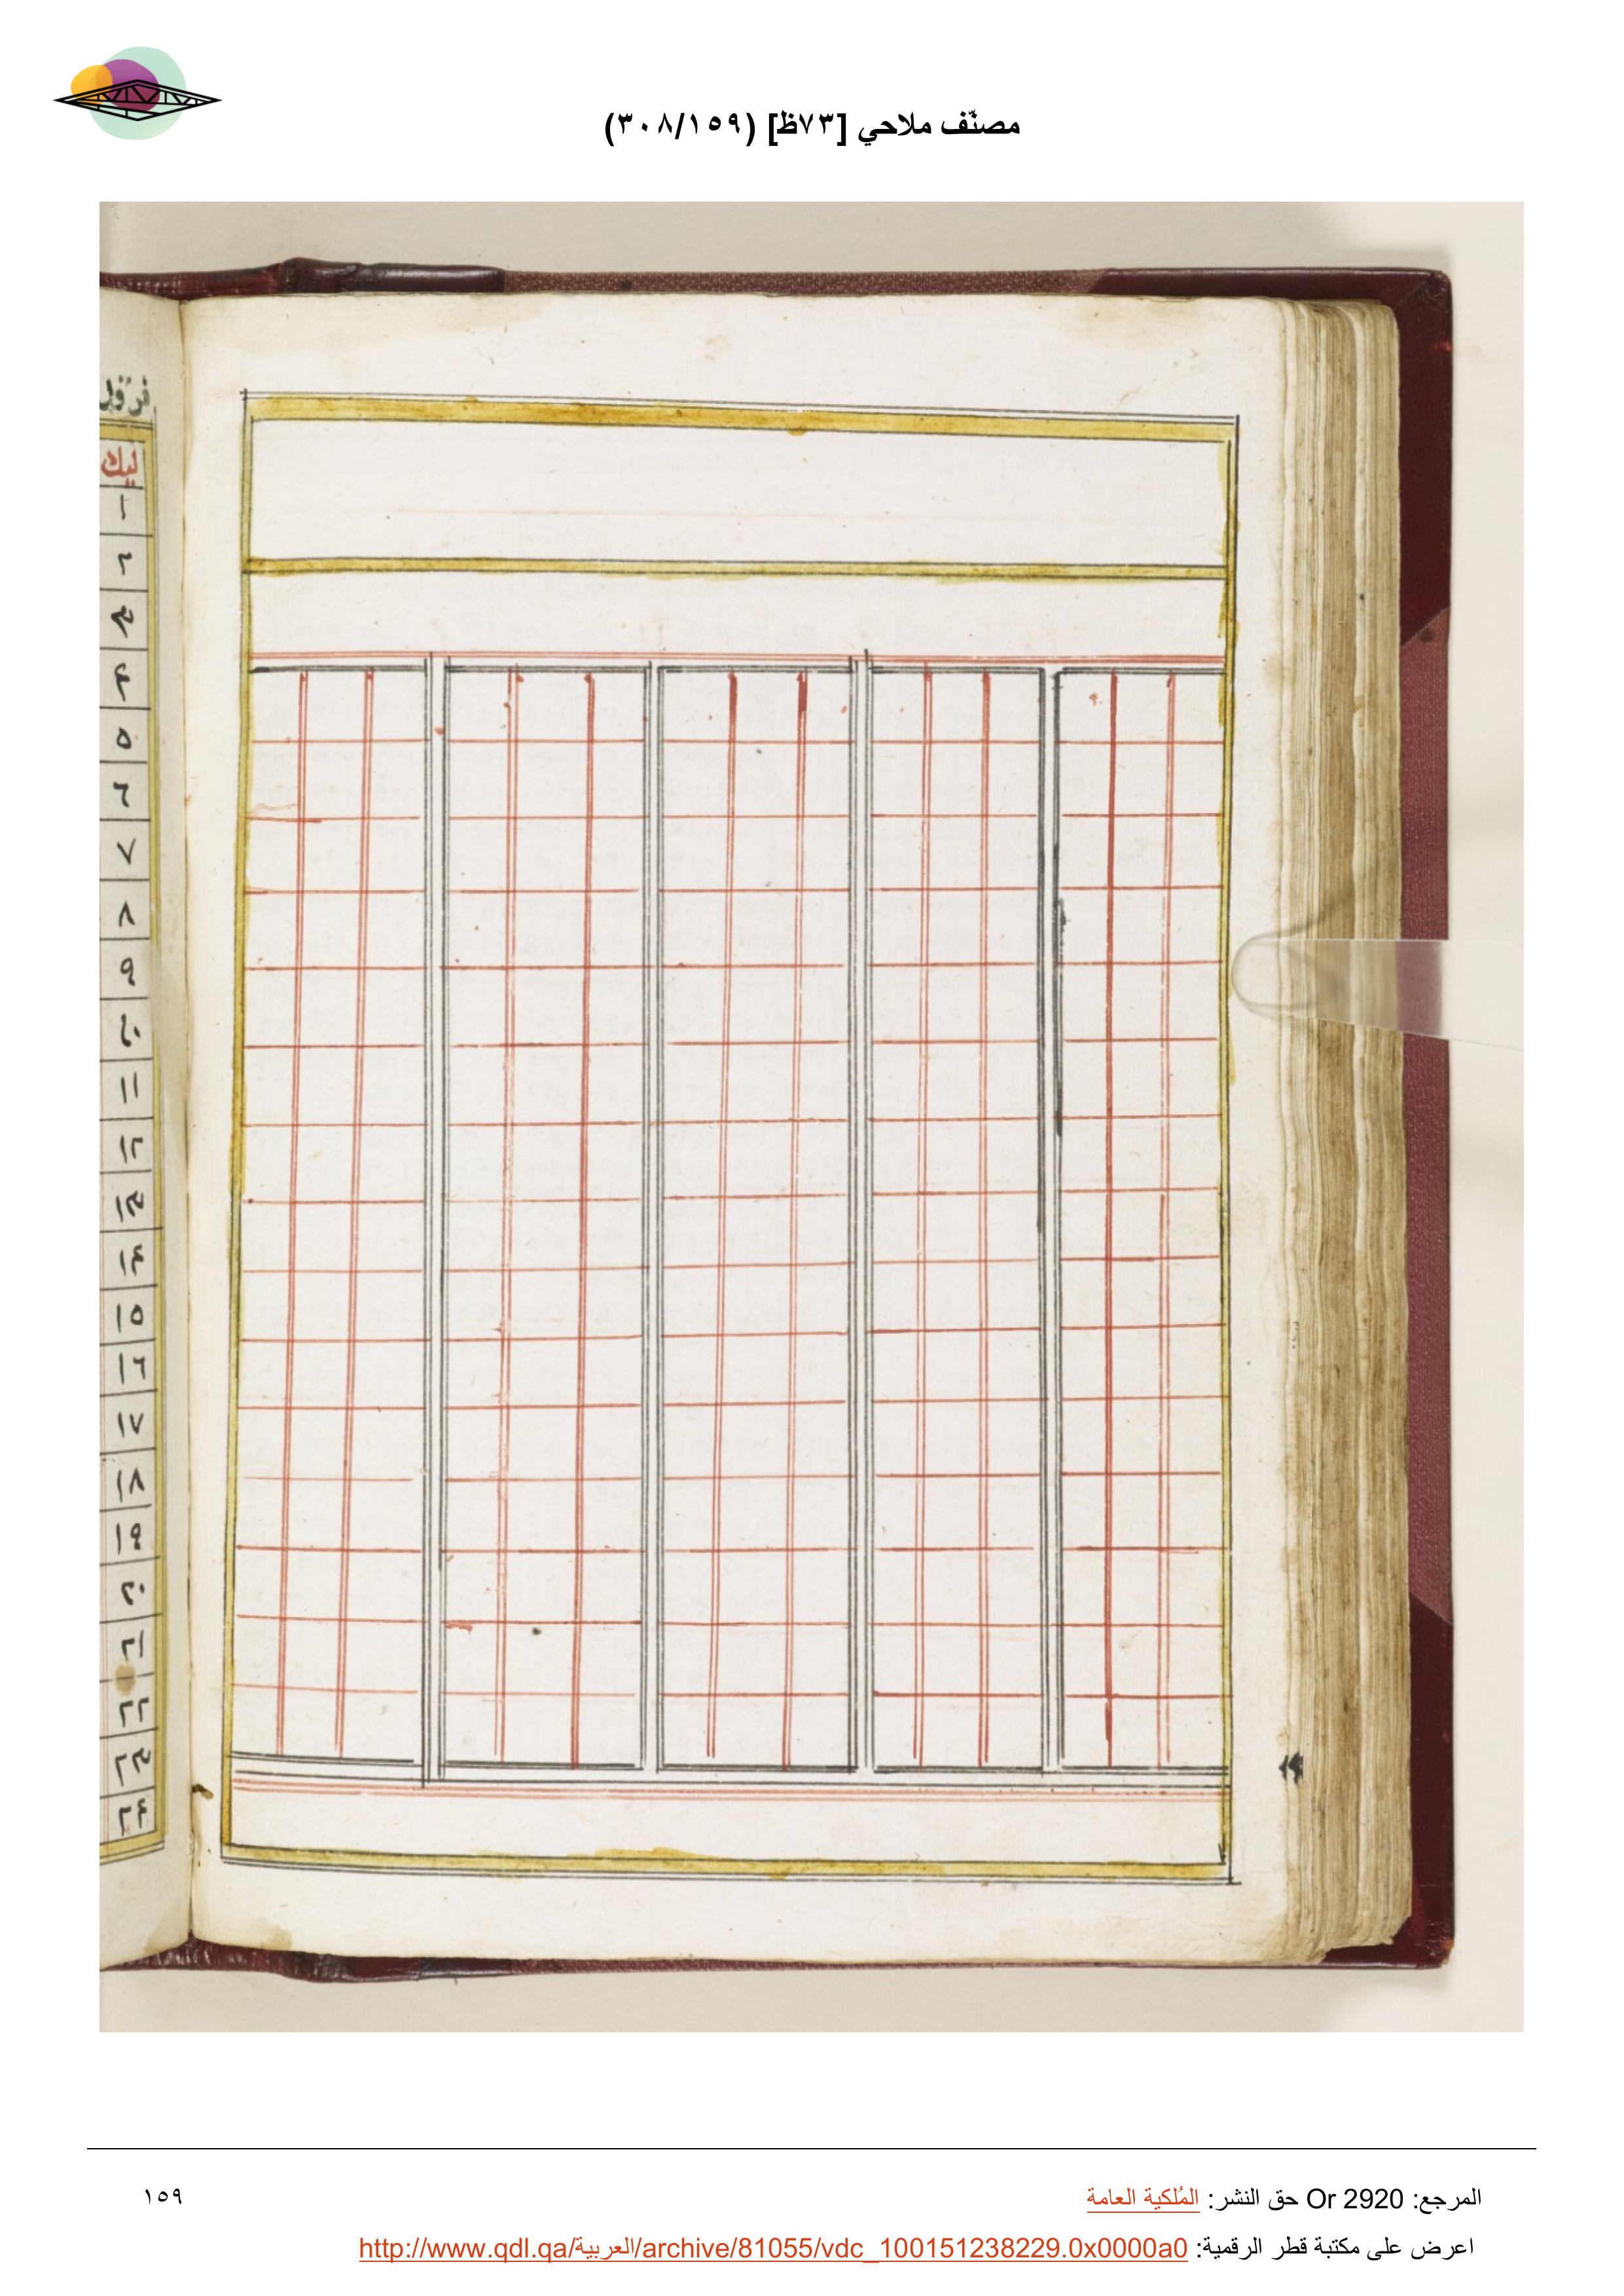 مصنّف ملاحي [٧٣ظ] (٣٠٨/١٥٩)
ليك
١
٢
٣
۴
٥
٦
٧
٨
٩
١٠
١١
١٢
١٣
١۴
١٥
١٦
١٧
١٨
١٩
٢٠
٢١
٢٢
٢٣
٢۴
المرجع: Or 2920 حق النشر: المُلكية العامة
١٥٩
اعرض على مكتبة قطر الرقمية: http://www.qdl.qa/العربية/archive/81055/vdc_100151238229.0x0000a0